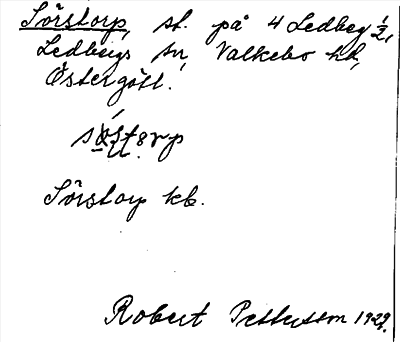 Sörstorp, st. på 4 Ledberg 1/2,
Ledbergs sn, Valkebo hd,
Östergötl.
Sörstorp kb.
Robert Pettersson 1929.